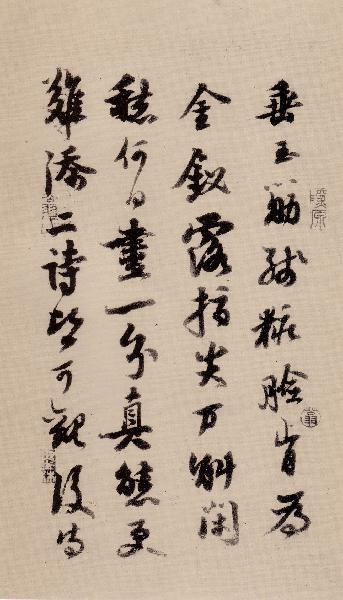 垂玉筯殘粧臉肯為
金釵露指尖万斛閑
愁何日盡一分真態更
難添二詩皆可觀後